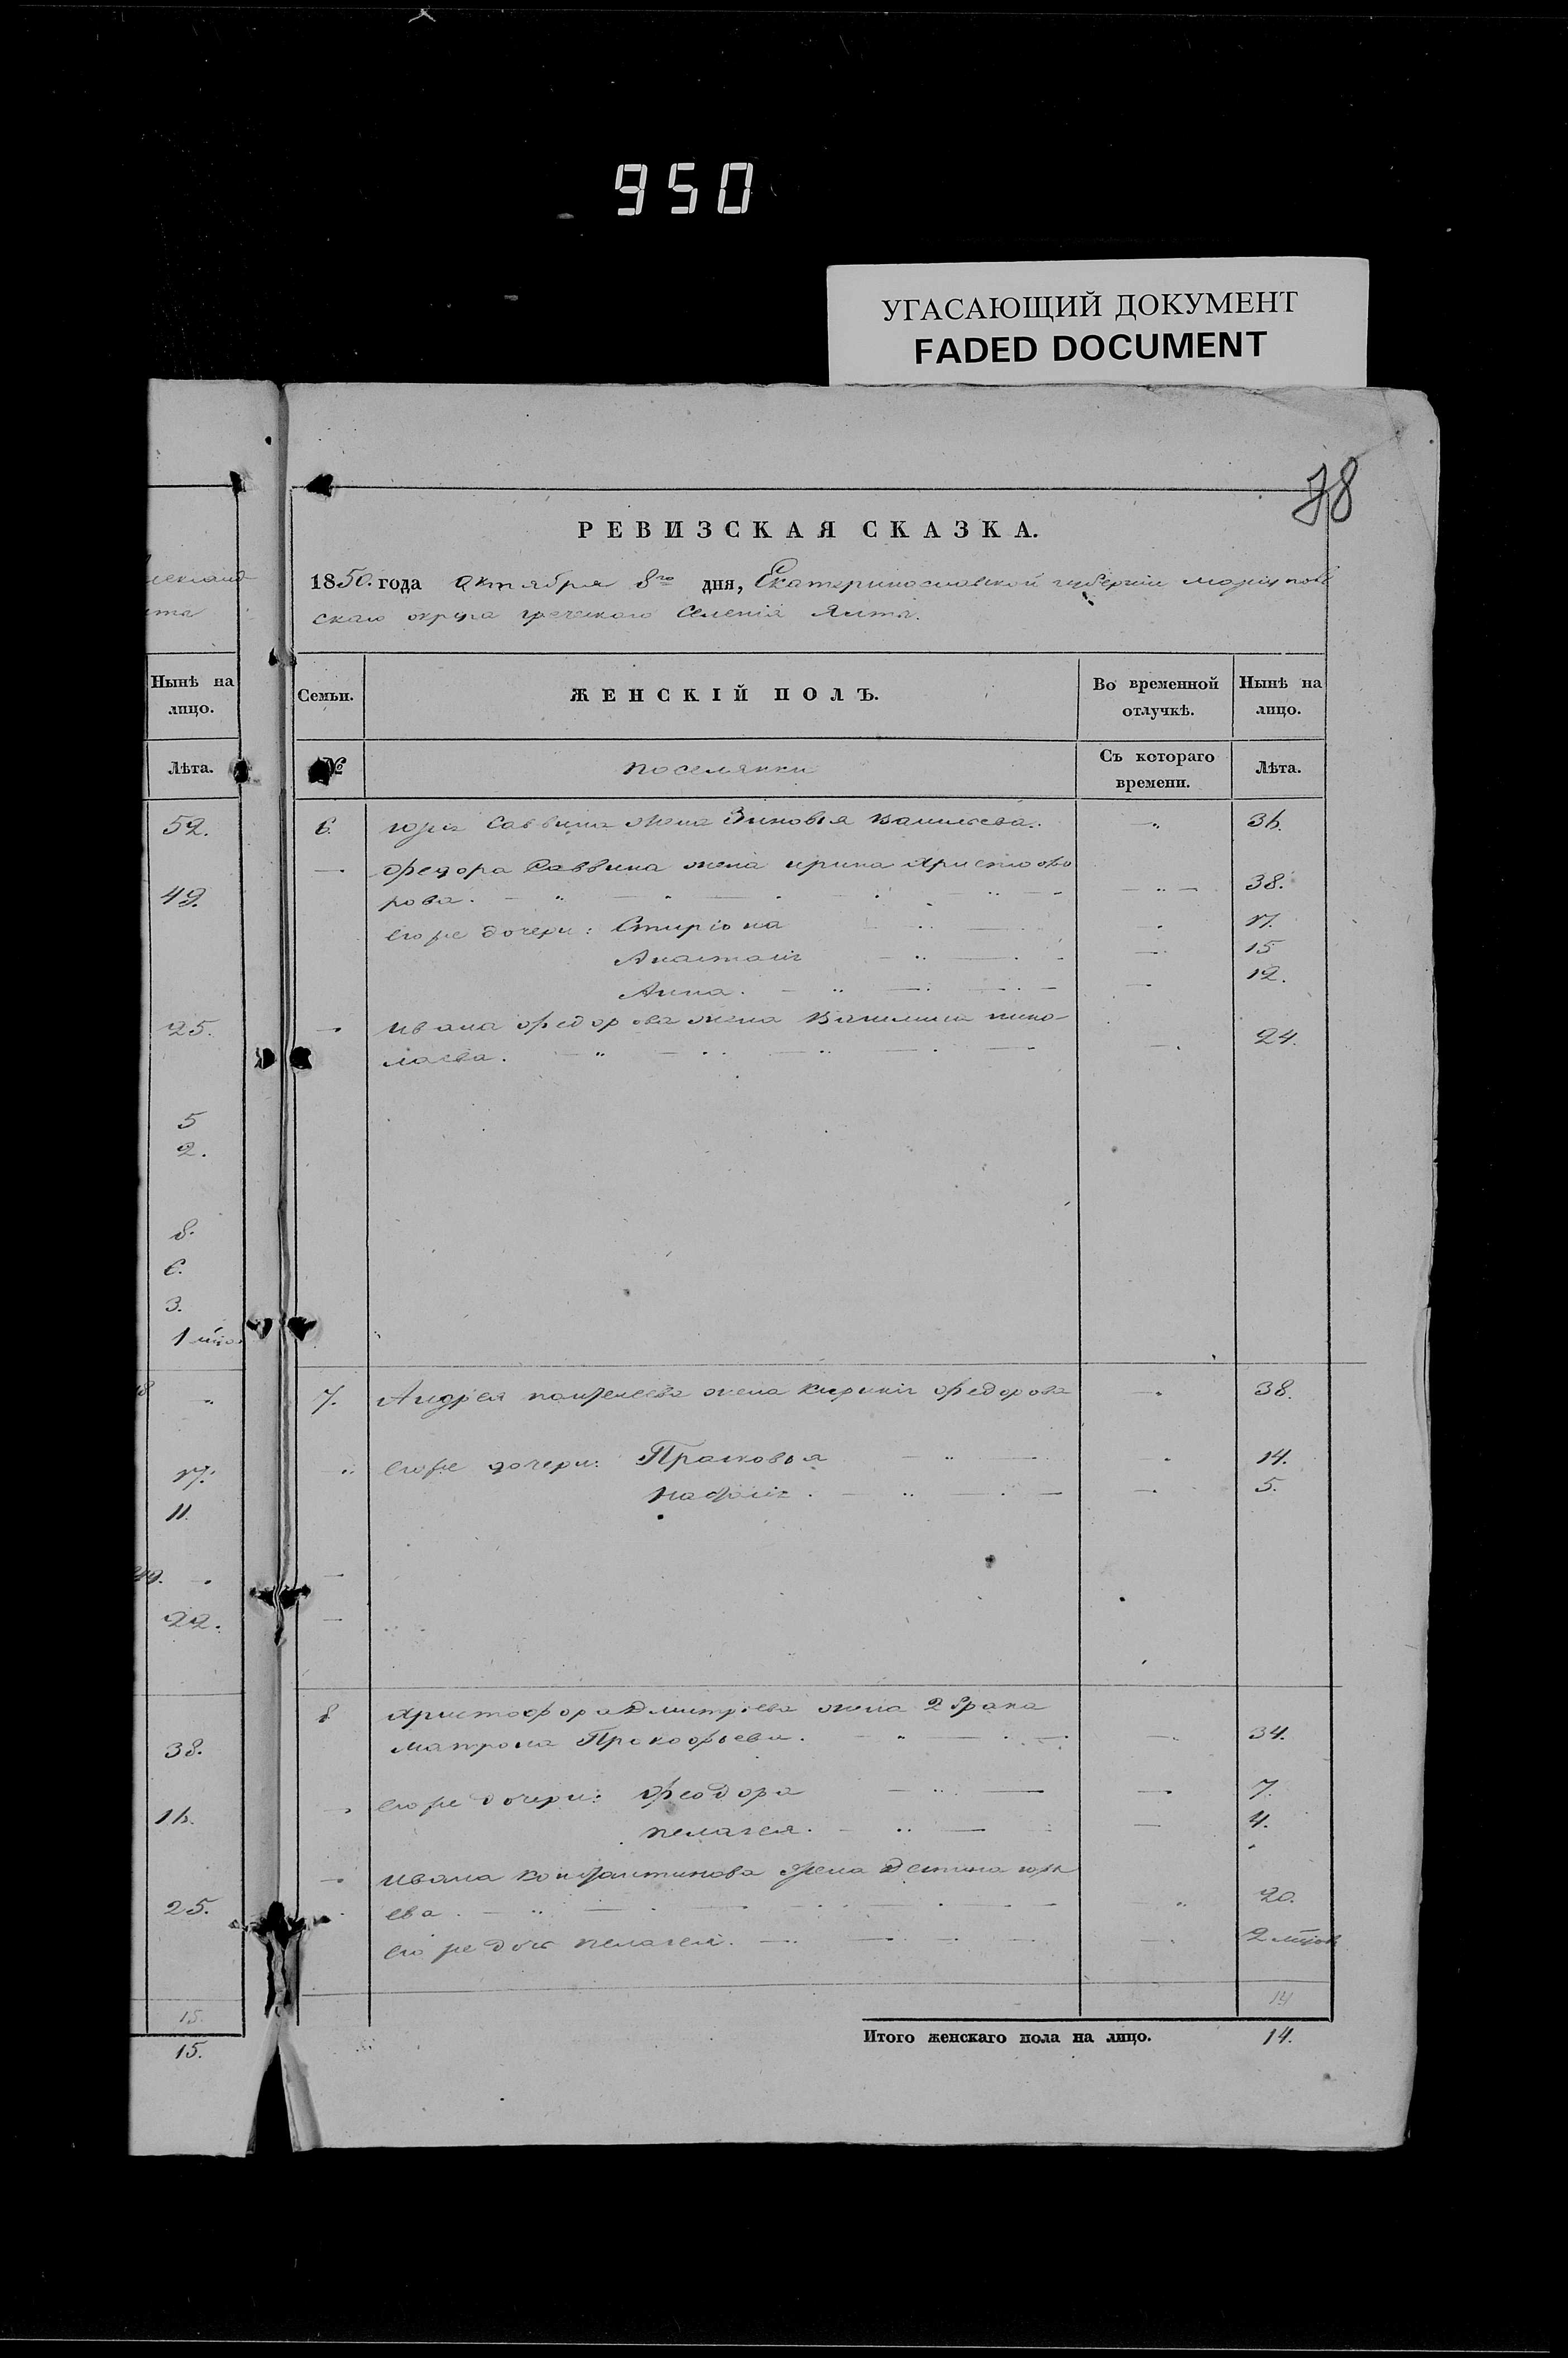 950
УГАСАЮЩИЙ ДОКУМЕНТ
FADED DOCUMENT
78
РЕВИЗСКАЯ СКАЗКА.
1850. года Октября 8го дня, Екатеринославской губернiи марiуполь
скаго округа греческаго Селенiя Ялта.
Нынѣ на лицо.
Лѣта.
52.
49.
25.
5
2.
8.
6.
3.
1
17.
11.
22.
38.
16.
25.
15.
15.
Семьи. ЖЕНСКIЙ ПОЛЪ. Во временной отлучкѣ. Нынѣ на лицо.
№ поселянки Съ котораго времени. Лѣта.
6. юрiя Саввина жена Зиновья васильева. 36.
федора Саввина жена ирина христофо
рова. 38.
его же дочери: Стирiона 17.
Анастасiя 15
Анна. 12.
ивана федорова жена василиса нико-
лаева. 24.
7. Андрея пантелеева жена кирикiя федорова 38.
его же дочери: Прасковья 14.
5.
8 христофора Дмитрiева жена 2 брака
матрона Прокофьева. 34.
его же дочери: феодора 7.
пелагея. 4.
ивана константинова жена юрь
ева. 20.
его же дочь пелагея. 2
14
Итого женскаго пола на лицо. 14.